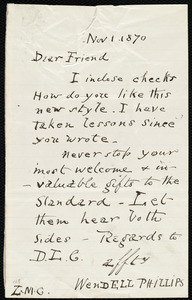 Nov 1. 1870
Dear Friend
I inclose checks
How do you like this
new style. I have
taken lessons since
you wrote.
never stop your
most welcome & in-
-valuable gifts to the
Standard - Let
them hear both
sides - Regards to
D. L. C.
affly
WENDELL PHILLIPS
L. M. C.